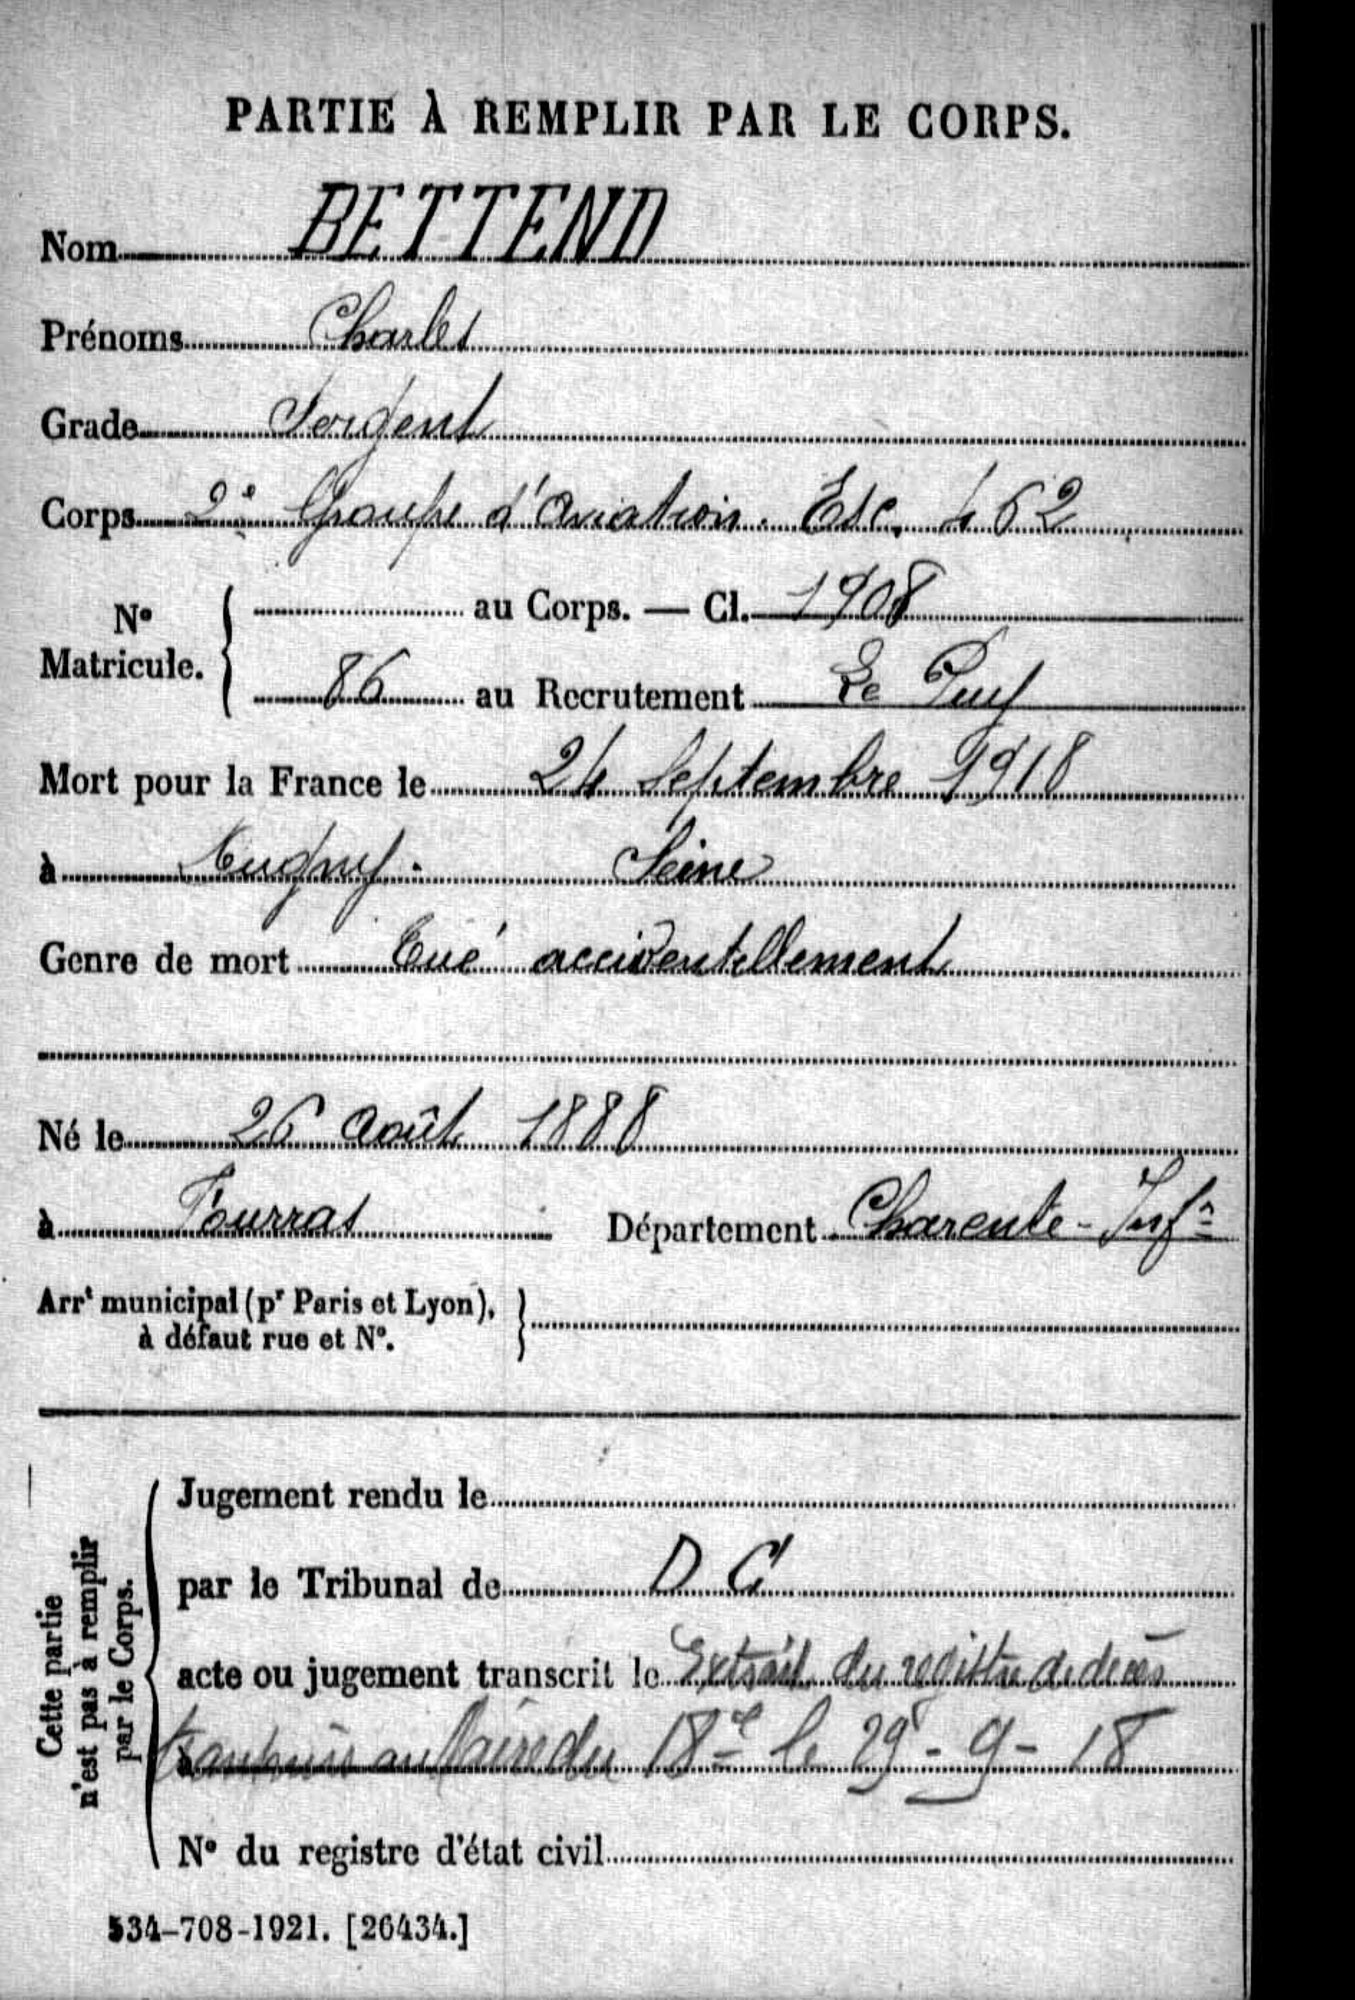 PARTIE À REMPLIR PAR LE CORPS.
Nom BETTEND
Prénoms Charles
Grade Sergent
Corps 2e Groupe d'Aviation. Esc. 462
No Matricule. { au Corps. — Cl. 1908
86 au Recrutement Le Puy
Mort pour la France le 24 Septembre 1918
à Dugny. Seine
Genre de mort Tué accidentellement
Né le 26 Août 1888
à Fourras Département Charente-Infre
Arrt municipal (pr Paris et Lyon), }
à défaut rue et No.
Cette partie
n'est pas à remplir
par le Corps.
Jugement rendu le
par le Tribunal de D C
acte ou jugement transcrit le Extrait du registre de décès
au Maire du 18e le 29-9-18
No du registre d'état civil
534-708-1921. [26434.]